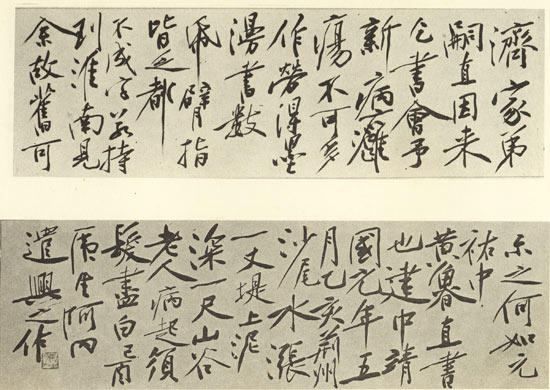 濟家弟
嗣直因來
乞書會予
新病癰
瘍不可多
作勞得墨
漫書數
紙臂指
皆乏都
不成字若持
到淮南見
余故舊可
示之何如元
祐中
黃魯直書
也建中靖
國元年五
月乙亥荊州
沙尾水漲
一丈堤上泥
深一尺山谷
老人病起須
髮盡白己酉
生阿
遣興之作